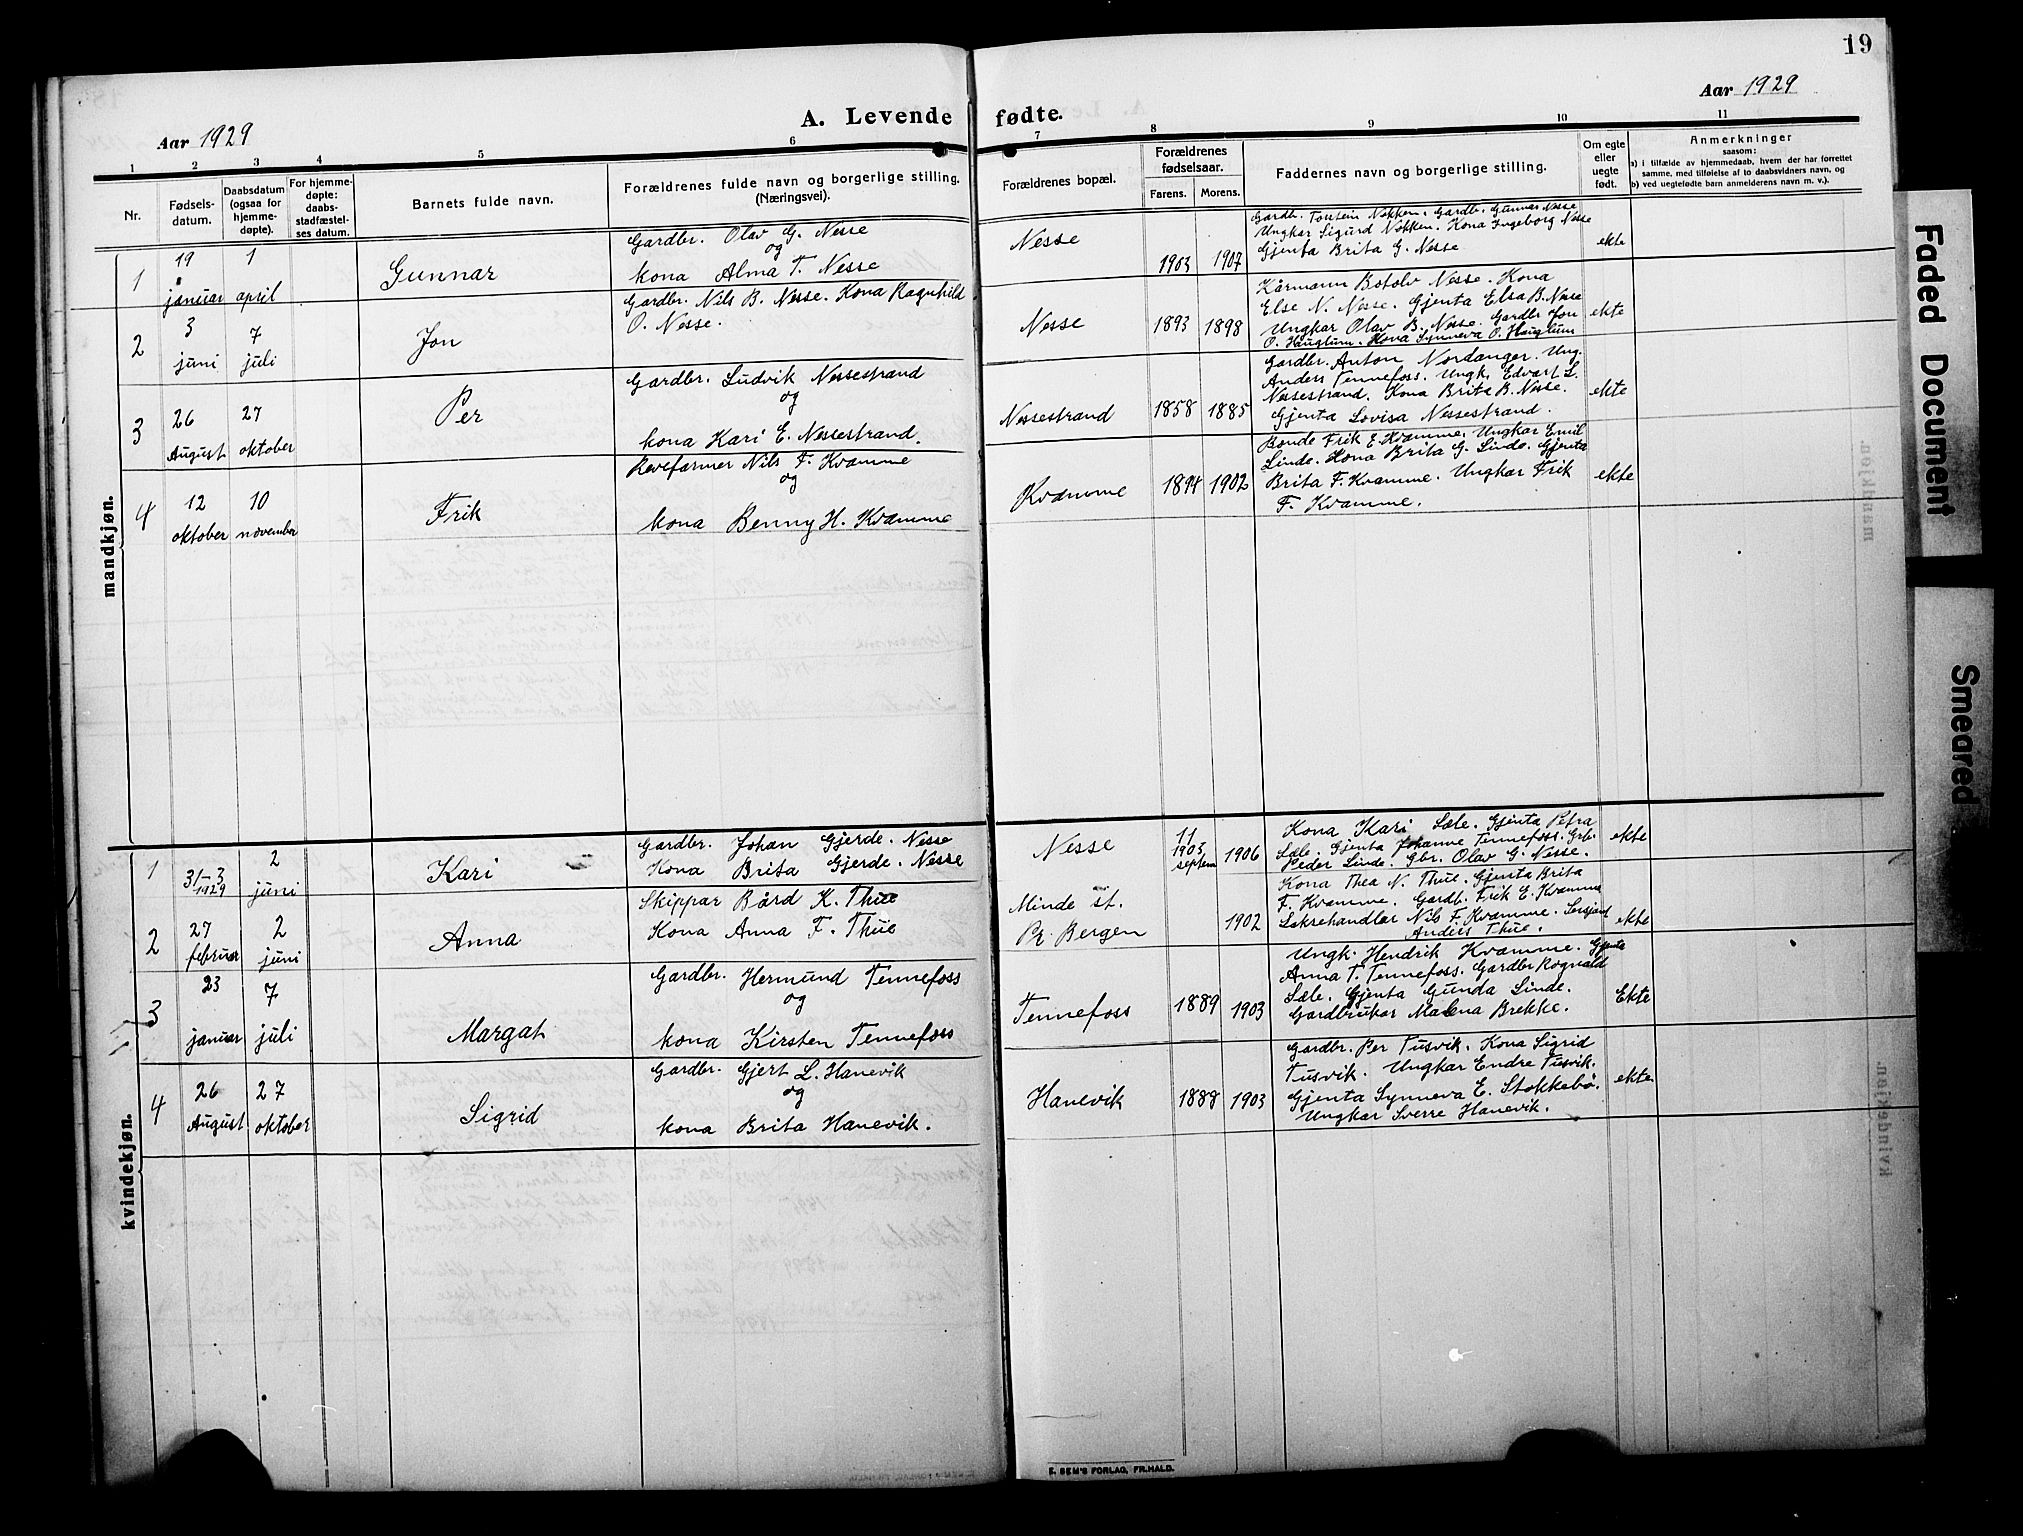 19
Aar 1929
A. Levende fødte.
Aar 1929
1 2 3 4 5 6 7 8 9 10 11
Nr.
Fødsels-
datum.
Daabsdatum
(ogsaa for
hjemme-
døpte).
For hjemme-
døpte:
daabs-
stadfæstel-
ses datum.
Barnets fulde navn.
Forældrenes fulde navn og borgerlige stilling.
(Næringsvei).
Forældrenes bopæl.
Forældrenes
fødselsaar.
Farens. Morens.
Faddernes navn og borgerlige stilling.
Om egte
eller
uegte
født.
Anmerkninger
saasom:
a) i tilfælde av hjemmedaab, hvem der har forrettet
samme, med tilføielse af to daabsvidners navn, og
b) ved uegtefødte barn anmelderens navn m. v.).
mandkjøn.
1
19
januar
1
april
Gunnar
Gardbr. Olav G. Nesse
og
kona Alma T. Nesse
Nesse
1903 1907
Gardbr. Torstein Nøkken. Gardbr. Gunnar Nesse
Ungkar Sigurd Nøkken. Kona Ingeborg Nesse
Gjenta Brita G. Nesse
ekte
2
3
juni
7
juli
Jon
Gardbr. Nils B. Nesse. Kona Ragnhild
O. Nesse.
Nesse
1893 1898
Kårmann Botolv Nesse. Kona
Else N. Nesse. Gjenta Elsa B. Nesse
Ungkar Olav B. Nesse. Gardbr Jon
O. Hauglum. Kona Synneva O. Hauglum
ekte
3
26
August
27
oktober
Per
Gardbr. Ludvik Nessestrand
og
kona Kari E. Nessestrand.
Nessestrand
1858 1885
Gardbr. Anton Nordanger. Ung.
Anders Tennefoss. Ungk. Edvart L.
Nessestrand. Kona Brita B. Nesse.
Gjenta Lovisa Nessestrand.
ekte
4
12
oktober
10
november
Frik
Revefarmer Nils F. Kvamme
og
kona Benny H. Kvamme
Kvamme
1894 1902
Bonde Frik E. Kvamme. Ungkar Emil
Linde. Kona Brita G. Linde. Gjenta
Brita F. Kvamme. Ungkar Frik
F. Kvamme.
ekte
kvindekjøn.
1
31-3
1929
2
juni
Kari
Gardbr. Johan Gjerde. Nesse
Kona Brita Gjerde. Nesse
Nesse
11
1903
septem
1906
Kona Kari Sæle. Gjenta Petra
Sæle. Gjenta Johanne Tennefoss. Grb.
Peder Linde. Gbr. Olav G. Nesse.
ekte
2
27
februar
2
juni
Anna
Skippar Bård K. Thue
Kona Anna F. Thue
Minde st.
Pr. Bergen
1902
Kona Thea N. Thue. Gjenta Brita
F. Kvamme. Gardb. Frik E. Kvamme
Laksehandlar Nils F. Kvamme. Sersjant
Anders Thue.
ekte
3
23
januar
7
juli
Margat
Gardbr. Hermund Tennefoss
og
kona Kirsten Tennefoss
Tennefoss
1889 1903
Ungk. Hendrik Kvamme. Gjenta
Anna T. Tennefoss. Gardbr Rognald
Sæle. Gjenta Gunda Linde.
Gardbrukar Malena Brekke.
Ekte
4
26
August
27
oktober
Sigrid
Gardbr. Gjert L. Hanevik
og
kona Brita Hanevik.
Hanevik
1888 1903
Gardbr. Per Tusvik. Kona Sigrid
Tusvik. Ungkar Endre Tusvik.
Gjenta Synneva E. Stokkebø.
Ungkar Sverre Hanevik.
ekte
E. SEM'S FORLAG, FR.HALD.
Faded Document
Smeared